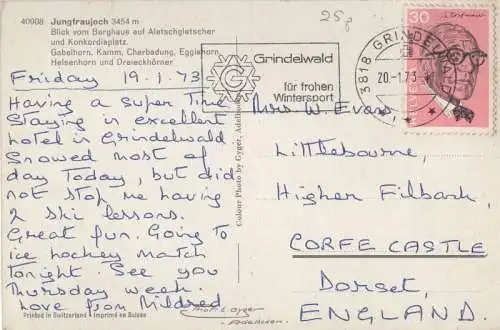 40908 Jungfraujoch 3454 m
Blick vom Berghaus auf Aletschgletscher
und Konkordiaplatz.
Gabelhorn, Kamm, Cherbadung, Eggishorn,
Helsenhorn und Dreieckhörner
Friday 19.1.73
Having a super Time
Staying in excellent
hotel in Grindelwald
Snowed most of
day Today, but did
not stop me having
2 ski lessons.
Great fun. Going to
ice hockey match
tonight. See you
Thursday week.
Love from Mildred
Printed in Switzerland - Imprimé en Suisse
Colour Photo by Gyger, Adelboden
25p
Grindelwald
für frohen
Wintersport
3818 GRINDELWALD
20.-1.73
30
HELVETIA
Mrs W Evans,
Littlebourne,
Higher Filbank,
CORFE CASTLE
Dorset,
ENGLAND.
Gyger
Adelboden